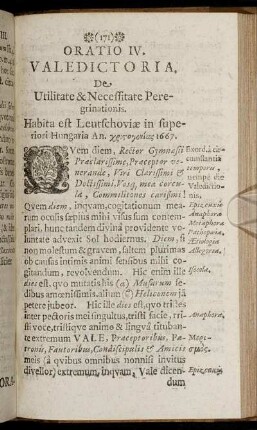 (171)
ORATIO IV.
VALEDICTORIA,
De
Utilitate & Necessitate Pere-
grinationis.
Habita est Leutschoviæ in supe-
riori Hungaria An. 1667.
QVem diem, Rector Gymnasii
Præclarissime, Præceptor ve-
nerande, Viri Clarissimi &
Doctissimi, Vosq, mea corcu-
la, Commilitones carissimi!
Qvem diem, inqvam, cogitationum mea-
rum oculis sæpius mihi visus sum contem-
plari, hunc tandem divinâ providente vo-
luntate advexit Sol hodiernus. Diem, si
non molestum & gravem, saltem plurimas
ob causas intimis animi sensibus mihi co-
gitandum, revolvendum. Hic enim ille
dies est, qvo mutatis his (a) Musarum se-
dibus amœnissimis, alium (b) Heliconem jã
petere jubeor. Hic ille dies est, qvo tristes
inter pectoris mei singultus, tristi facie, tri-
sti voce, tristiqve animo & lingvâ situban-
te extremum VALE, Præceptoribus, Pa-
tronis, Fautoribus, Condiscipulis & Amicis
meis (â qvibus omnibus nonnisi invitus
divellor) extremum, inqvam, Vale dicen-
dum
Exord. â cir-
cumstantia
temporis,
nempe die
Valedictio-
nis.
Anaphora
Metaphora
Pathopœia,
Ætiologia
Allegoria.
Anaphora,